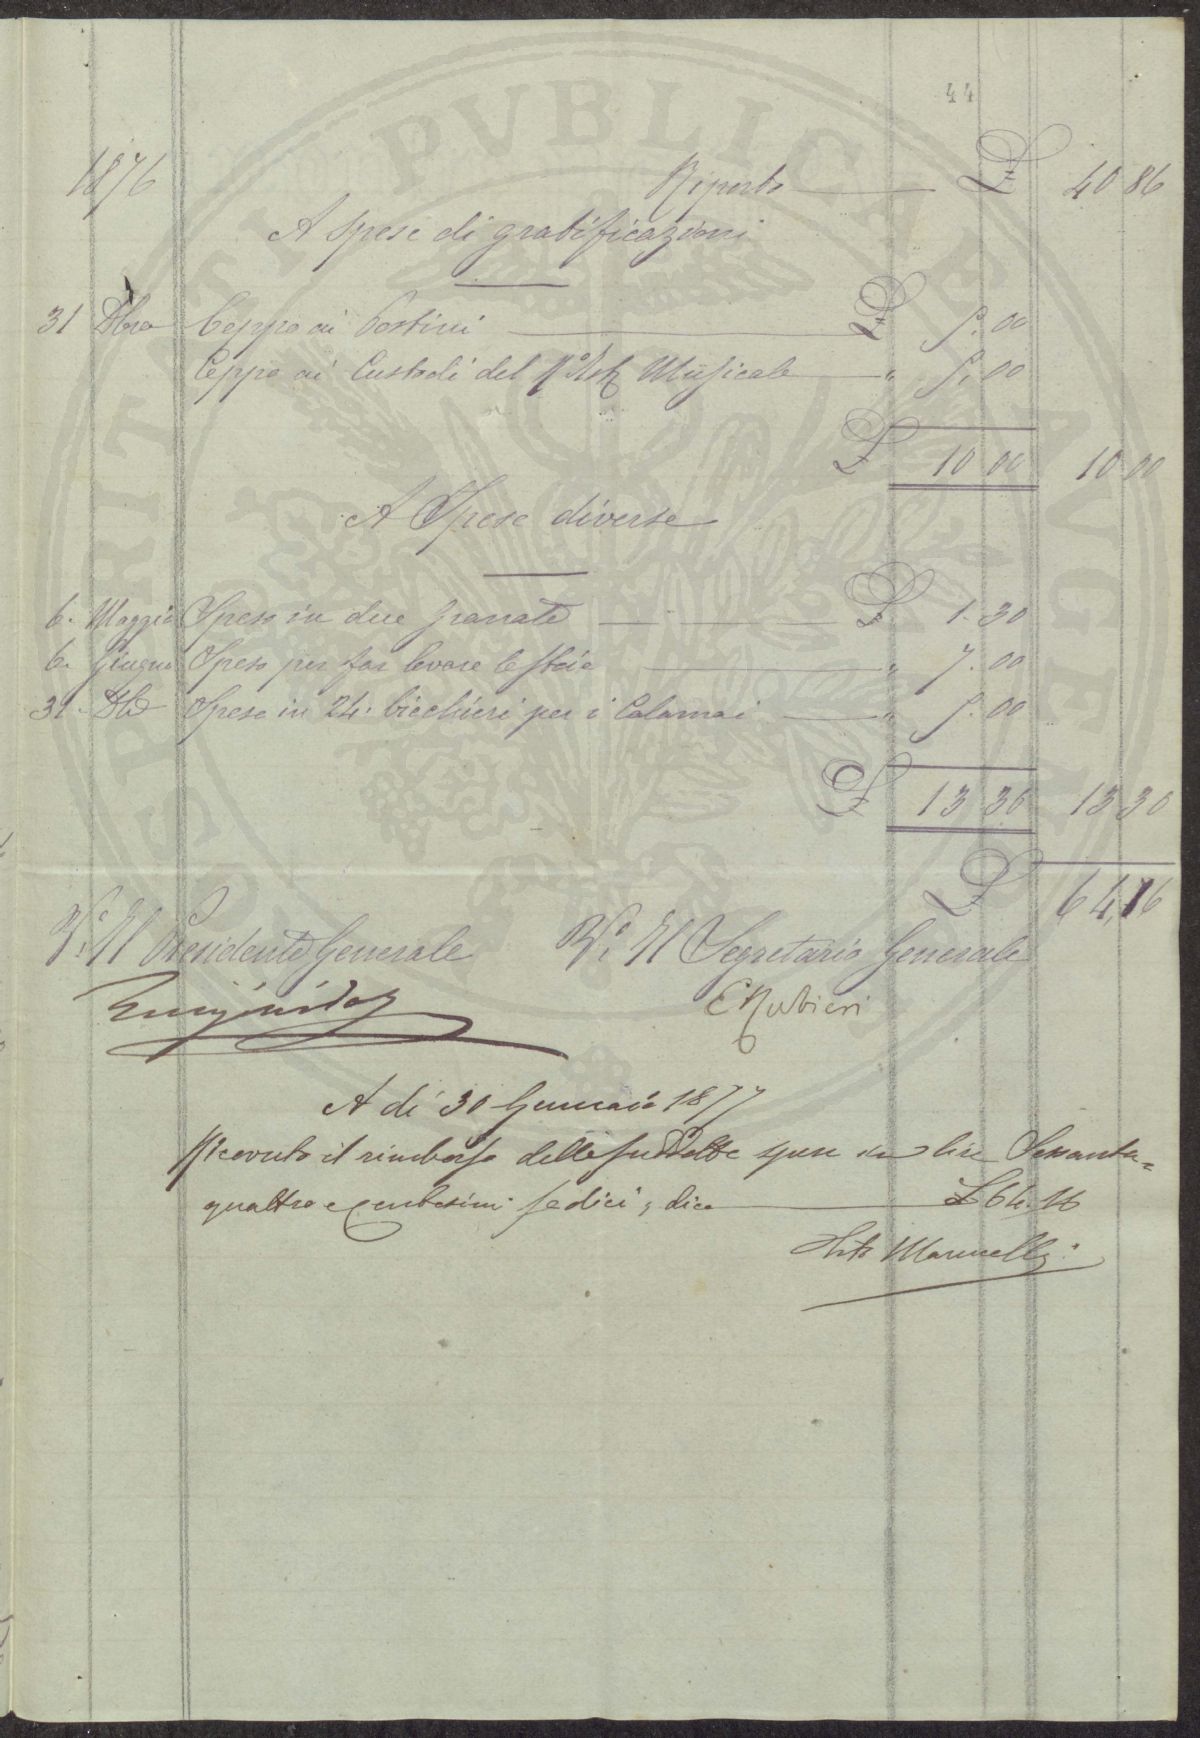 44
1876 Riporto £ 40 86
A Spese di gratificazioni
31 Dbre Ceppo ai Postini £ 5.00
Ceppo ai Custodi del R.º Ist. Musicale " 5.00
£ 10 00 10 00
A Spese diverse
6. Maggio Speso in due Granate £ 1.30
6. Giugno Speso per far levare le stoie " 7.00
31. Dbe Spese in 24. bicchieri per i Calamai " 5.00
£ 13 30 13 30
£ 64,16
V.º Il Presidente Generale V.º Il Segretario Generale
E Rubieri
A di 30 Gennaio 1877
Ricevuto il rimborso delle suddette spese in lire Sessanta=
quattro e centesimi sedici, dico £ 64.16
Marucelli
PVBLICAE